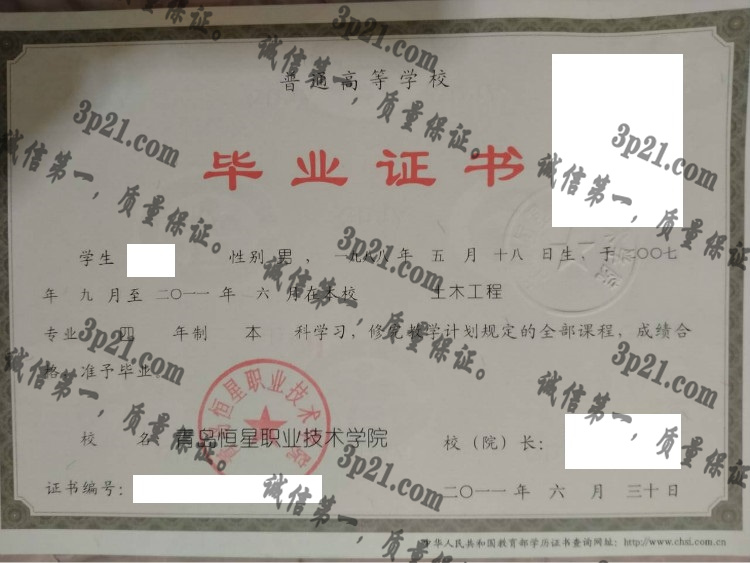 普通高等学校
毕业证书
学生 性别 男 ，一九八八年 五 月 十八 日生，于二〇〇七
年 九 月至 二〇一一 年 六 月在本校 土木工程
专业 四 年制 本 科学习，修完教学计划规定的全部课程，成绩合
格，准予毕业。
校 名 青岛恒星职业技术学院 校（院）长：
证书编号： 二〇一一 年 六 月 三十日
中华人民共和国教育部学历证书查询网址：http://www.chsi.com.cn
青岛恒星职业技术学院
3p21.com
诚信第一，质量保证。
3p21.com
诚信第一，质量保证。
3p21.com
诚信第一，质量保证。
3p21.com
诚信第一，质量保证。
3p21.com
诚信第一，质量保证。
3p21.com
诚信第一，质量保证。
3p21.com
诚信第一，质量保证。
3p21.com
诚信第一，质量保证。
3p21.com